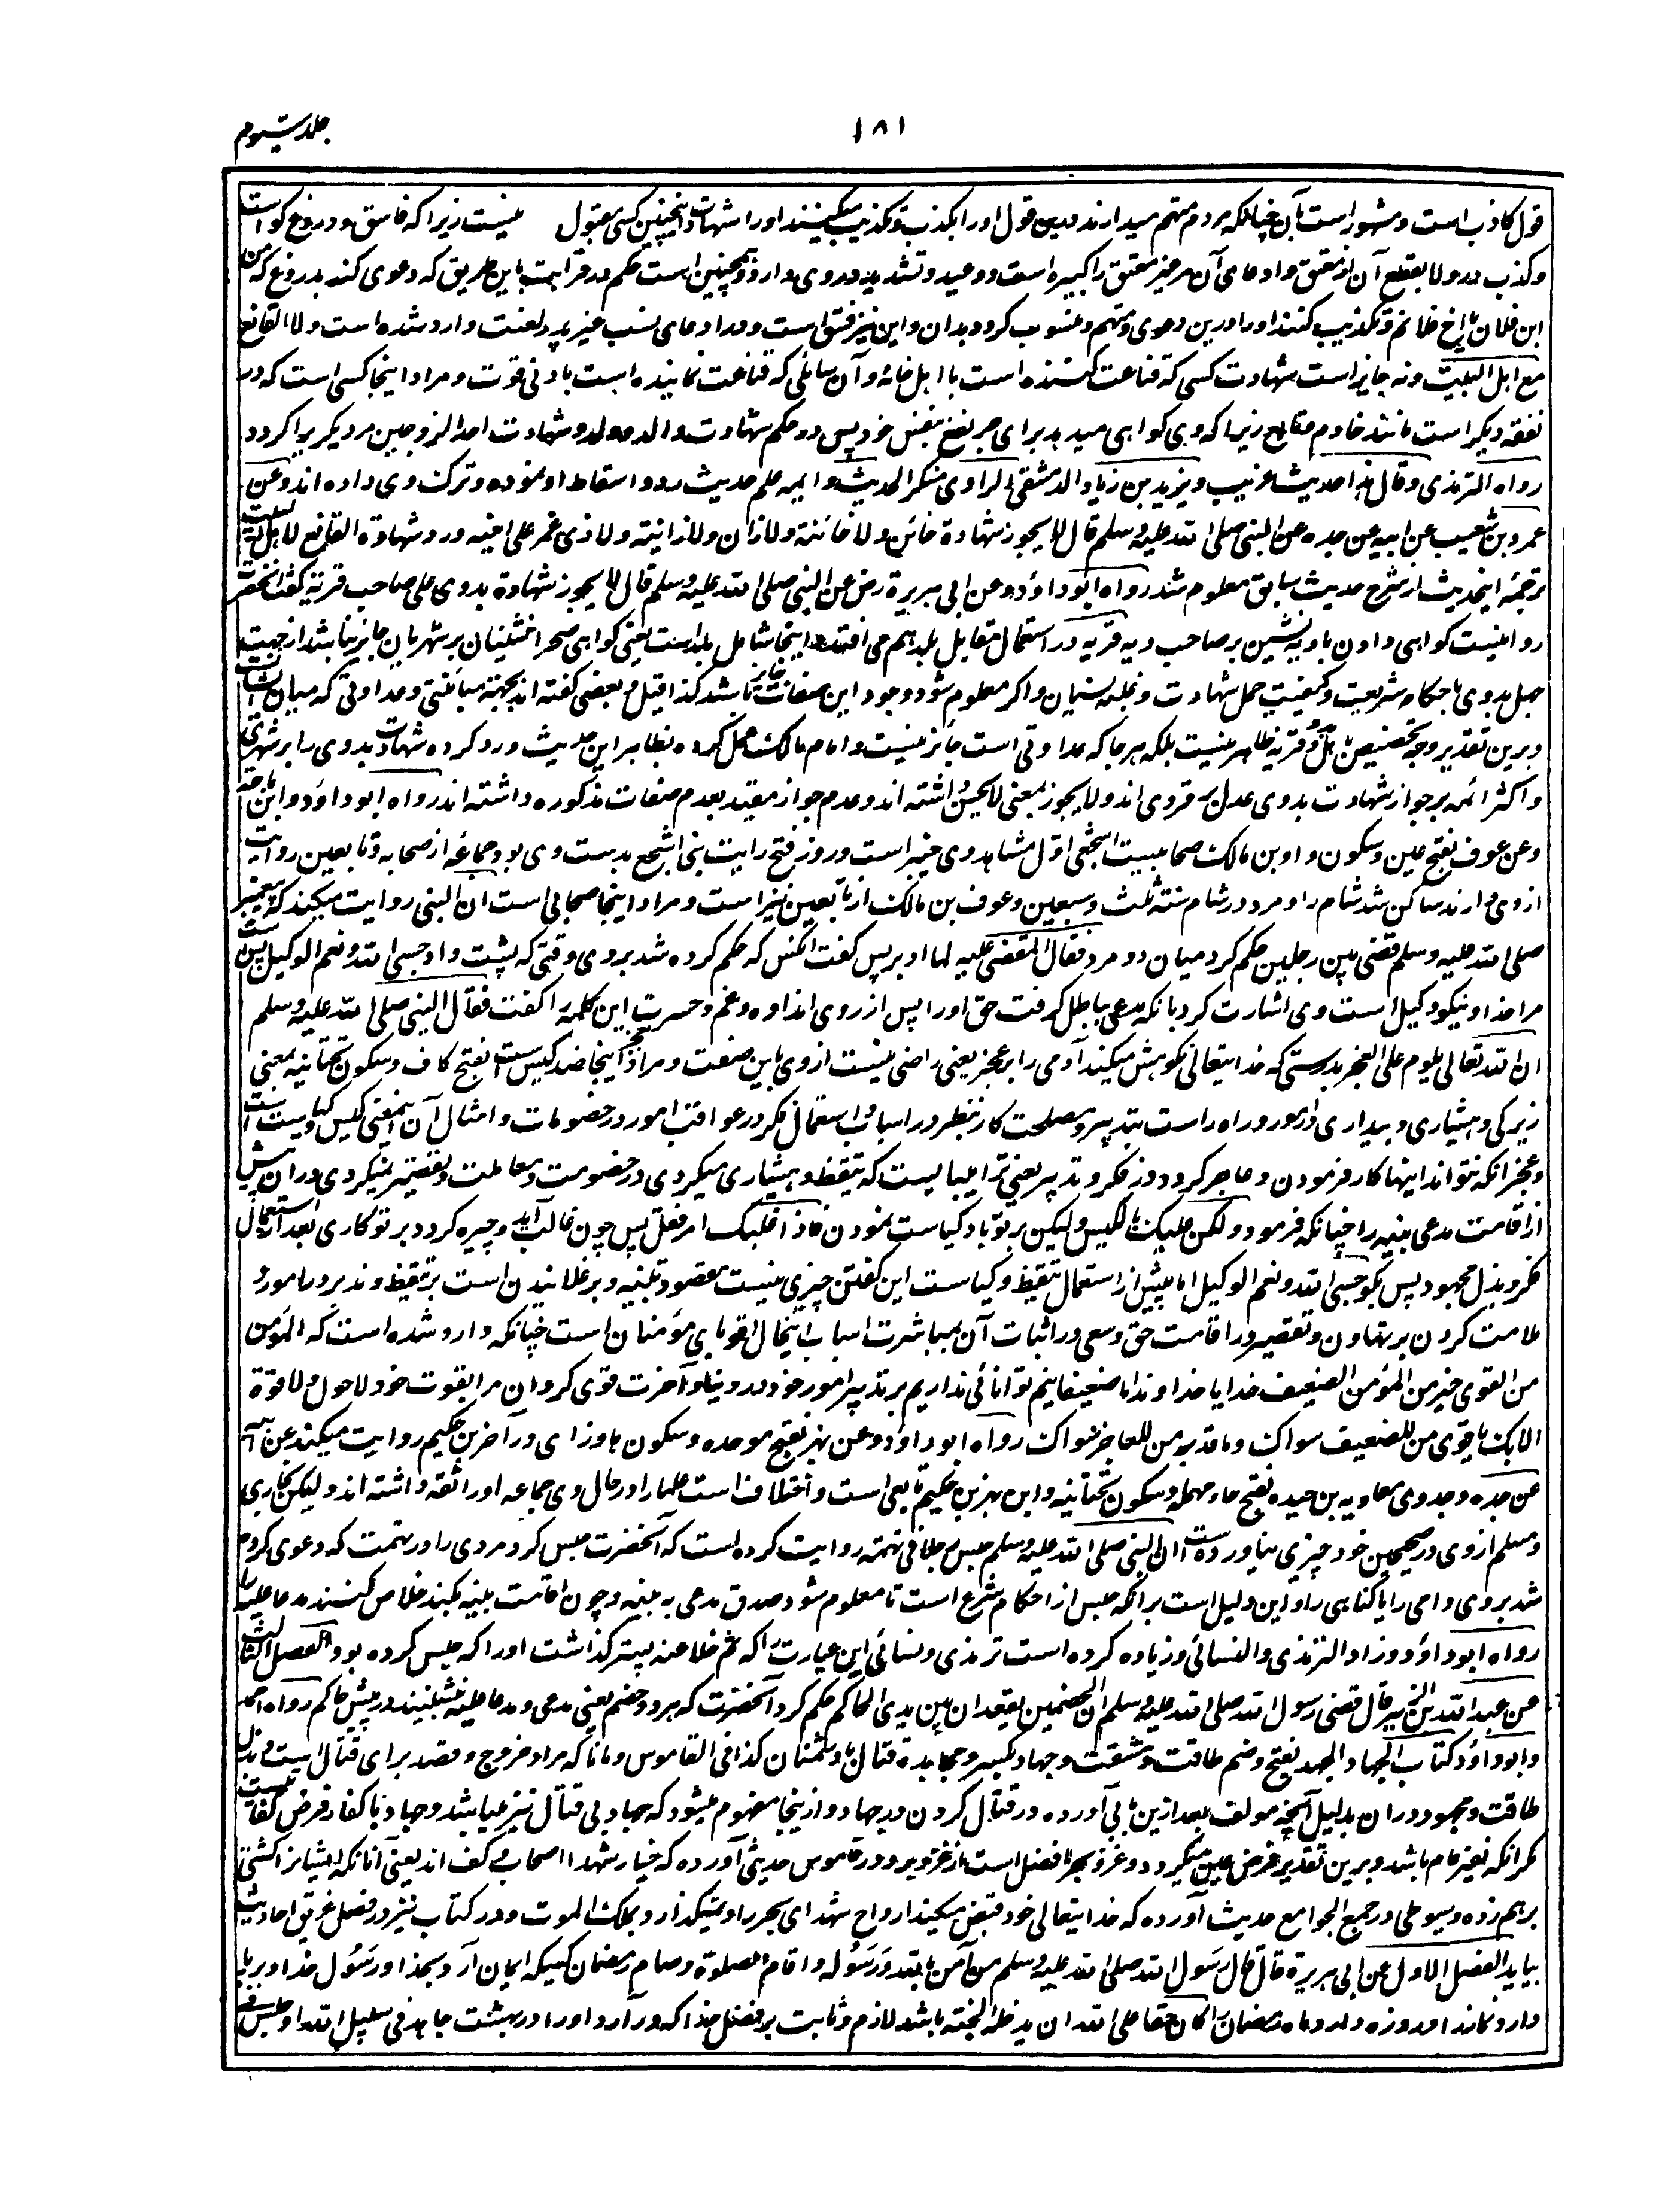 جلد سیوم
١٨١
قول کاذب است و مشهور است بآن چنانکه مردم متهم میدارند درین قول او را بکذب و تکذیب میکنند او را شهادت اینچنین کسی مقبول نیست زیرا که فاسق و دروغ گو است
و کذب در ولا بقطع آن از معتق و ادعای آن مر غیر معتق را کبیره است و وعید و تشدید در وی وارد و همچنین است حکم در قرابت باین طریق که دعوی کند بدروغ که من
ابن فلان یا اخ فلانم و تکذیب کنند او را درین دعوی و متهم و منسوب گردد بدان و این نیز فسق است و در ادعای نسب غیر پدر لعنت وارد شده است و لا القانع
مع اهل البیت و نه جایز است شهادت کسی که قناعت کننده است با اهل خانه و آن سائلی که قناعت نماینده است بادنی قوت و مراد اینجا کسی است که در
نفقه دیگر است مانند خادم و تابع زیرا که وی گواهی میدهد برای جر نفع بنفس خود پس در حکم شهادت والد مر ولد و شهادت احد الزوجین مر دیگر را گردد
رواه الترمذی و قال هذا حدیث غریب و یزید بن زیاد الدمشقی الراوی منکر الحدیث و ایمه علم حدیث رد و اسقاط او نموده و ترک وی داده اند و عن
عمرو بن شعیب عن ابیه عن جده عن النبی صلی الله علیه و سلم قال لا یجوز شهادة خائن و لا خائنة و لا زان و لا زانیة و لا ذی غمر علی اخیه و رد شهادة القانع لاهل البیت
ترجمهٔ اینحدیث از شرح حدیث سابق معلوم شد رواه ابو داؤد و عن ابی هریرة رض عن النبی صلی الله علیه و سلم قال لا یجوز شهادة بدوی علی صاحب قریة گفت آنحضرت
روا نیست گواهی دادن بادیه نشین بر صاحب دیه قریه در استعمال مقابل بلد هم می افتد و اینجا شامل بلد است یعنی گواهی صحرا نشینان بر شهریان جایز نباشد از جهت
جهل بدوی باحکام شریعت و کیفیت حمل شهادت و غلبه نسیان و اگر معلوم شود وجود این صفات جایز باشد کذا قیل و بعضی گفته اند بجهة مبائنتی و عداوتی که میان ایشان است
و برین تقدیر وجه تخصیص باهل قریه ظاهر نیست بلکه هر جا که عداوتی است جائز نیست و امام مالک عمل کرده بظاهر این حدیث و رد کرده شهادت بدوی را بر شهری
و اکثر ائمه بر جواز شهادت بدوی عدل بر قروی اند و لا یجوز بمعنی لا یحسن داشته اند و عدم جواز مقید بعدم صفات مذکوره داشته اند رواه ابو داؤد و ابن ماجة
و عن عوف بفتح عین و سکون واو بن مالک صحابیست اشجعی اول مشاهد وی خیبر است و روز فتح رایت بنی اشجع بدست وی بود جماعه از صحابه و تابعین روایت
از وی دارند ساکن شد شام را و مرد در شام سنة ثلث و سبعین و عوف بن مالک از تابعین نیز است و مراد اینجا صحابی است ان النبی روایت میکند که پیغمبر
صلی الله علیه و سلم قضی بین رجلین حکم کرد میان دو مرد فقال المقضی علیه لما ادبر پس گفت آنکس که حکم کرده شد بر وی وقتی که پشت داد حسبی الله و نعم الوکیل بس است
مرا خدا و نیکو وکیل است وی اشارت کرد بانکه مدعی بباطل گرفت حق او را پس از روی اندوه و غم و حسرت این کلمه را گفت فقال النبی صلی الله علیه و سلم
ان الله تعالی یلوم علی العجز بدرستی که خدایتعالی نکوهش میکند آدمی را بر عجز یعنی راضی نیست از وی باین صفت و مراد بعجز اینجا ضد کیس است بفتح کاف و سکون تحتانیه بمعنی
زیرکی و هشیاری و بیداری در امور و راه راست بتدبیر و مصلحت کار بنظر در اسباب و استعمال فکر در عواقب امور در خصومات و امثال آن اینمعنی کیس و کیاست است
و عجز آنکه نتواند اینها کار فرمودن و عاجز گردد در فکر و تدبیر یعنی ترا می بایست که تیقظ و هشیاری میکردی در خصومت و معاملت و تقصیر نمیکردی در ان پیش
از اقامت مدعی بینه را چنانکه فرمود و لکن علیک بالکیس و لیکن بر تو باد کیاست نمودن فاذا غلبک امر فقل پس چون غالب آید و چیره گردد بر تو کاری بعد استعمال
فکر و بذل مجهود پس بگو حسبی الله و نعم الوکیل اما پیش از استعمال تیقظ و کیاست این گفتن چیزی نیست مقصود تنبیه و برغلانیدن است بر تیقظ و تدبر در امور و
ملامت کردن بر تهاون و تقصیر در اقامت حق و سعی در اثبات آن بمباشرت اسباب اینحال اقویای مؤمنان است چنانکه وارد شده است که المؤمن
من القوی خیر من المؤمن الضعیف خدایا خداوندا ما ضعیفانیم توانائی نداریم بر تدبیر امور خود در دنیا و آخرت قوی گردان مرا بقوت خود لا حول و لا قوة
الا بک یا قوی من للضعیف سواک و یا قدیر من للعاجز سواک رواه ابو داؤد و عن بهز بفتح موحده و سکون ها و زای در آخر بن حکیم روایت میکند عن ابیه
عن جده و جد وی معاویه بن حیده بفتح حاء مهمله و سکون تحتانیه و این بهز بن حکیم تابعی است و اختلاف است علما را در حال وی جماعه او را ثقه داشته اند و لیکن بخاری
و مسلم از وی در صحیحین خود چیزی نیاورده است ان النبی صلی الله علیه و سلم حبس رجلا فی تهمة روایت کرده است که آنحضرت حبس کرد مردی را در تهمت که دعوی کرده
شد بر وی دامی را یا گناهی را و این دلیل است بر آنکه حبس از احکام شرع است تا معلوم شود صدق مدعی به بینه و چون اقامت بینه نکند خلاص کنند مدعا علیه را
رواه ابو داؤد و زاد الترمذی و النسائی و زیاده کرده است ترمذی و نسائی این عبارت را که ثم خلا عنه پستر گذاشت او را که حبس کرده بود الفصل الثالث
عن عبد الله بن الزبیر قال قضی رسول الله صلی الله علیه و سلم ان الخصمین یقعدان بین یدی الحاکم حکم کرد آنحضرت که هر دو خصم یعنی مدعی و مدعا علیه بنشینند در پیش حاکم رواه احمد
و ابو داؤد کتاب الجهاد الجهد بفتح و ضم طاقت و مشقت و جهاد بکسر و مجاهدة قتال با دشمنان کذا فی القاموس و مانا که مراد خروج و قصد برای قتال است و بذل
طاقت و مجهود در ان بدلیل آنچه مولف بعد ازین بابی آورده در قتال کردن در جهاد و از ینجا مفهوم میشود که جهاد بی قتال نیز میباشد و جهاد با کفار فرض کفایت است
مگر آنکه نفیر عام باشد و برین تقدیر فرض عین میگردد و غزو بحر افضل است از غزو بر و در قاموس حدیثی آورده که خیار شهدا اصحاب وکف اند یعنی آنانکه ایشانرا کشتی
برهم زده و سیوطی در جمع الجوامع حدیث آورده که خدایتعالی خود قبض میکند ارواح شهدای بحر را و نمیگذارد بملک الموت و در کتاب نیز در فضل غریق احادیث
بیاید الفصل الاول عن ابی هریرة قال قال رسول الله صلی الله علیه و سلم من آمن بالله و رسوله و اقام الصلوة و صام رمضان کسیکه ایمان آرد بخدا و رسول خدا و برپا
دارد نماز را و روزه دارد ماه رمضان را کان حقا علی الله ان یدخله الجنة باشد لازم و ثابت بر فضل خدا که در آرد او را در بهشت جاهد فی سبیل الله او جلس فی